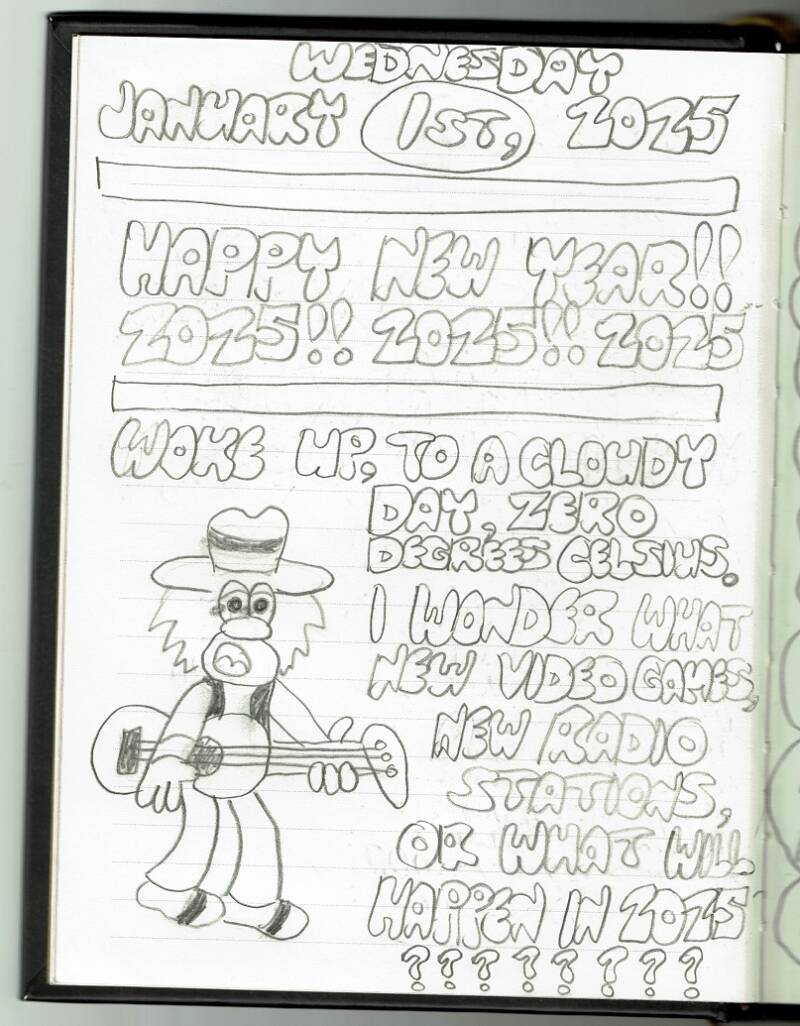 WEDNESDAY
JANUARY 1ST, 2025
HAPPY NEW YEAR!!
2025!! 2025!! 2025
WOKE UP, TO A CLOUDY
DAY, ZERO
DEGREES CELSIUS.
I WONDER WHAT
NEW VIDEO GAMES,
NEW RADIO
STATIONS,
OR WHAT WILL
HAPPEN IN 2025
????????